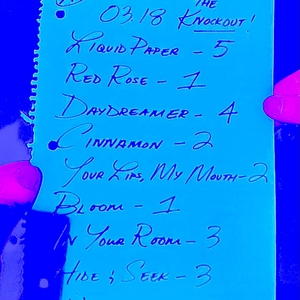 THE
03.18 KNOCKOUT!
LIQUID PAPER - 5
RED ROSE - 1
DAYDREAMER - 4
CINNAMON - 2
YOUR LIPS, MY MOUTH - 2
BLOOM - 1
IN YOUR ROOM - 3
HIDE & SEEK - 3